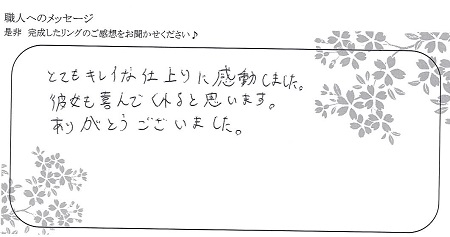 職人へのメッセージ
是非 完成したリングのご感想をお聞かせください♪
とてもキレイな仕上りに感動しました。
彼女も喜んでくれると思います。
ありがとうございました。